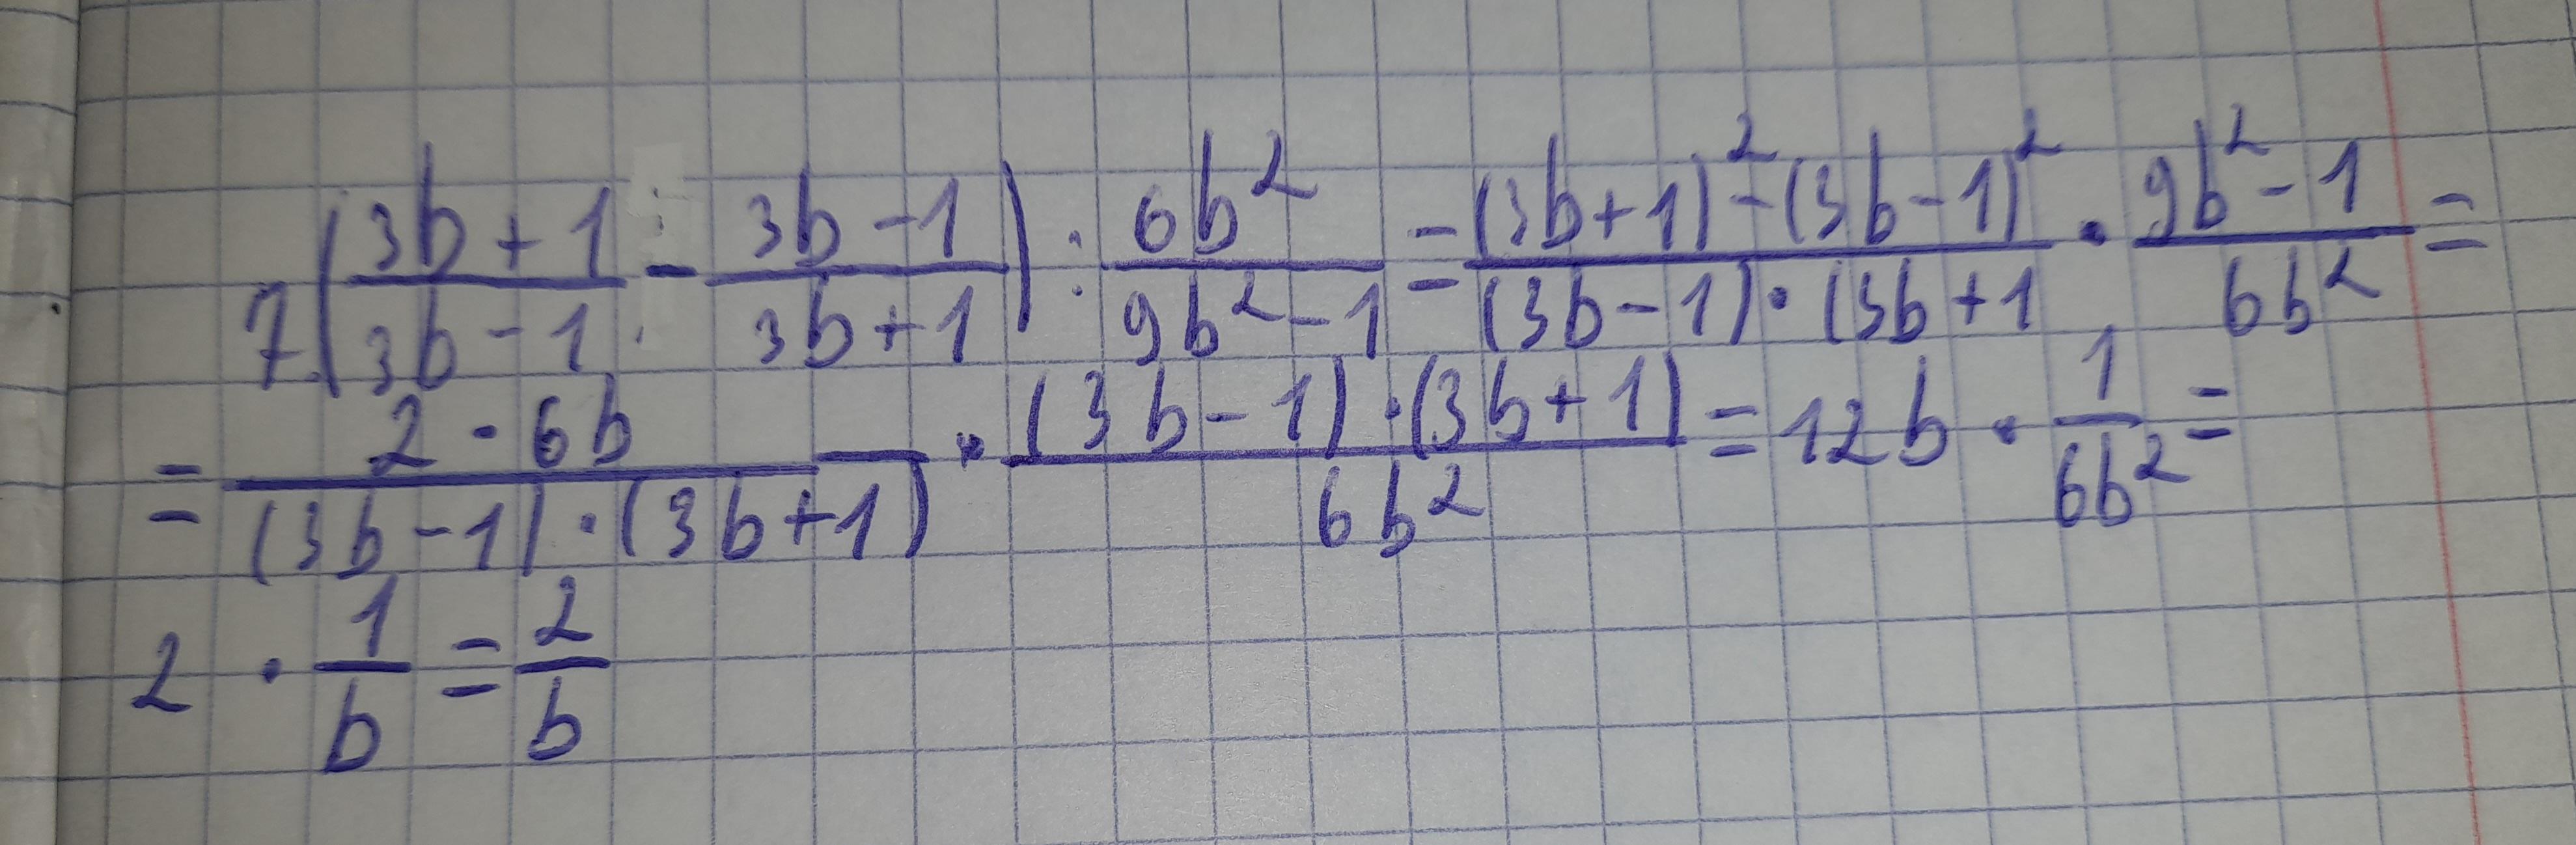 7. ((3b+1)/(3b-1) - (3b-1)/(3b+1)) : 6b²/(9b²-1) = ((3b+1)²-(3b-1)²)/((3b-1)·(3b+1) · (9b²-1)/(6b²) =
= (2·6b)/((3b-1)·(3b+1)) · ((3b-1)·(3b+1))/(6b²) = 12b · 1/(6b²) =
2 · 1/b = 2/b